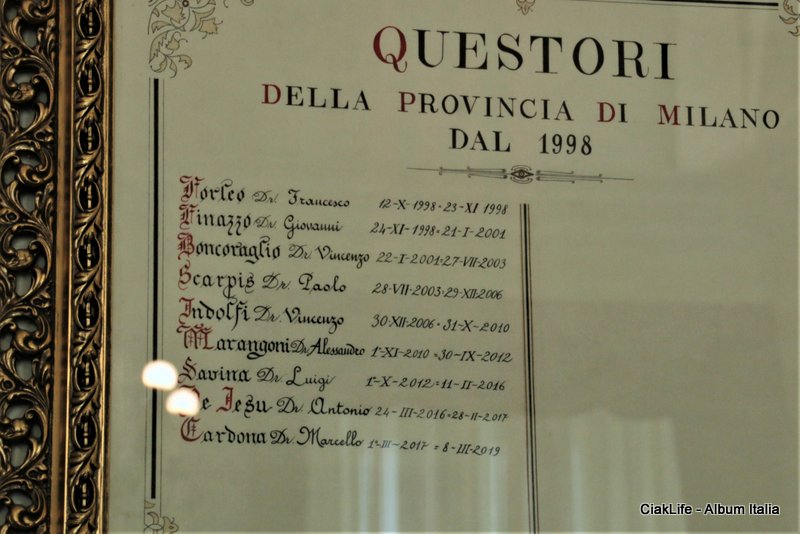 QUESTORI
DELLA PROVINCIA DI MILANO
DAL 1998
Forleo Dr. Francesco 12-X-1998=23-XI 1998
Finazzo Dr. Giovanni 24-XI-1998=21-I-2001
Boncoraglio Dr. Vincenzo 22-I-2001=27-VII-2003
Scarpis Dr. Paolo 28-VII-2003=29-XII-2006
Indolfi Dr. Vincenzo 30-XII-2006=31-X-2010
Marangoni Dr. Alessandro 1°-XI-2010=30-IX-2012
Savina Dr. Luigi 1°-X-2012=11-II-2016
De Iesu Dr. Antonio 24-III-2016=28-II-2017
Cardona Dr. Marcello 1°-III-2017=8-III-2019
CiakLife - Album Italia